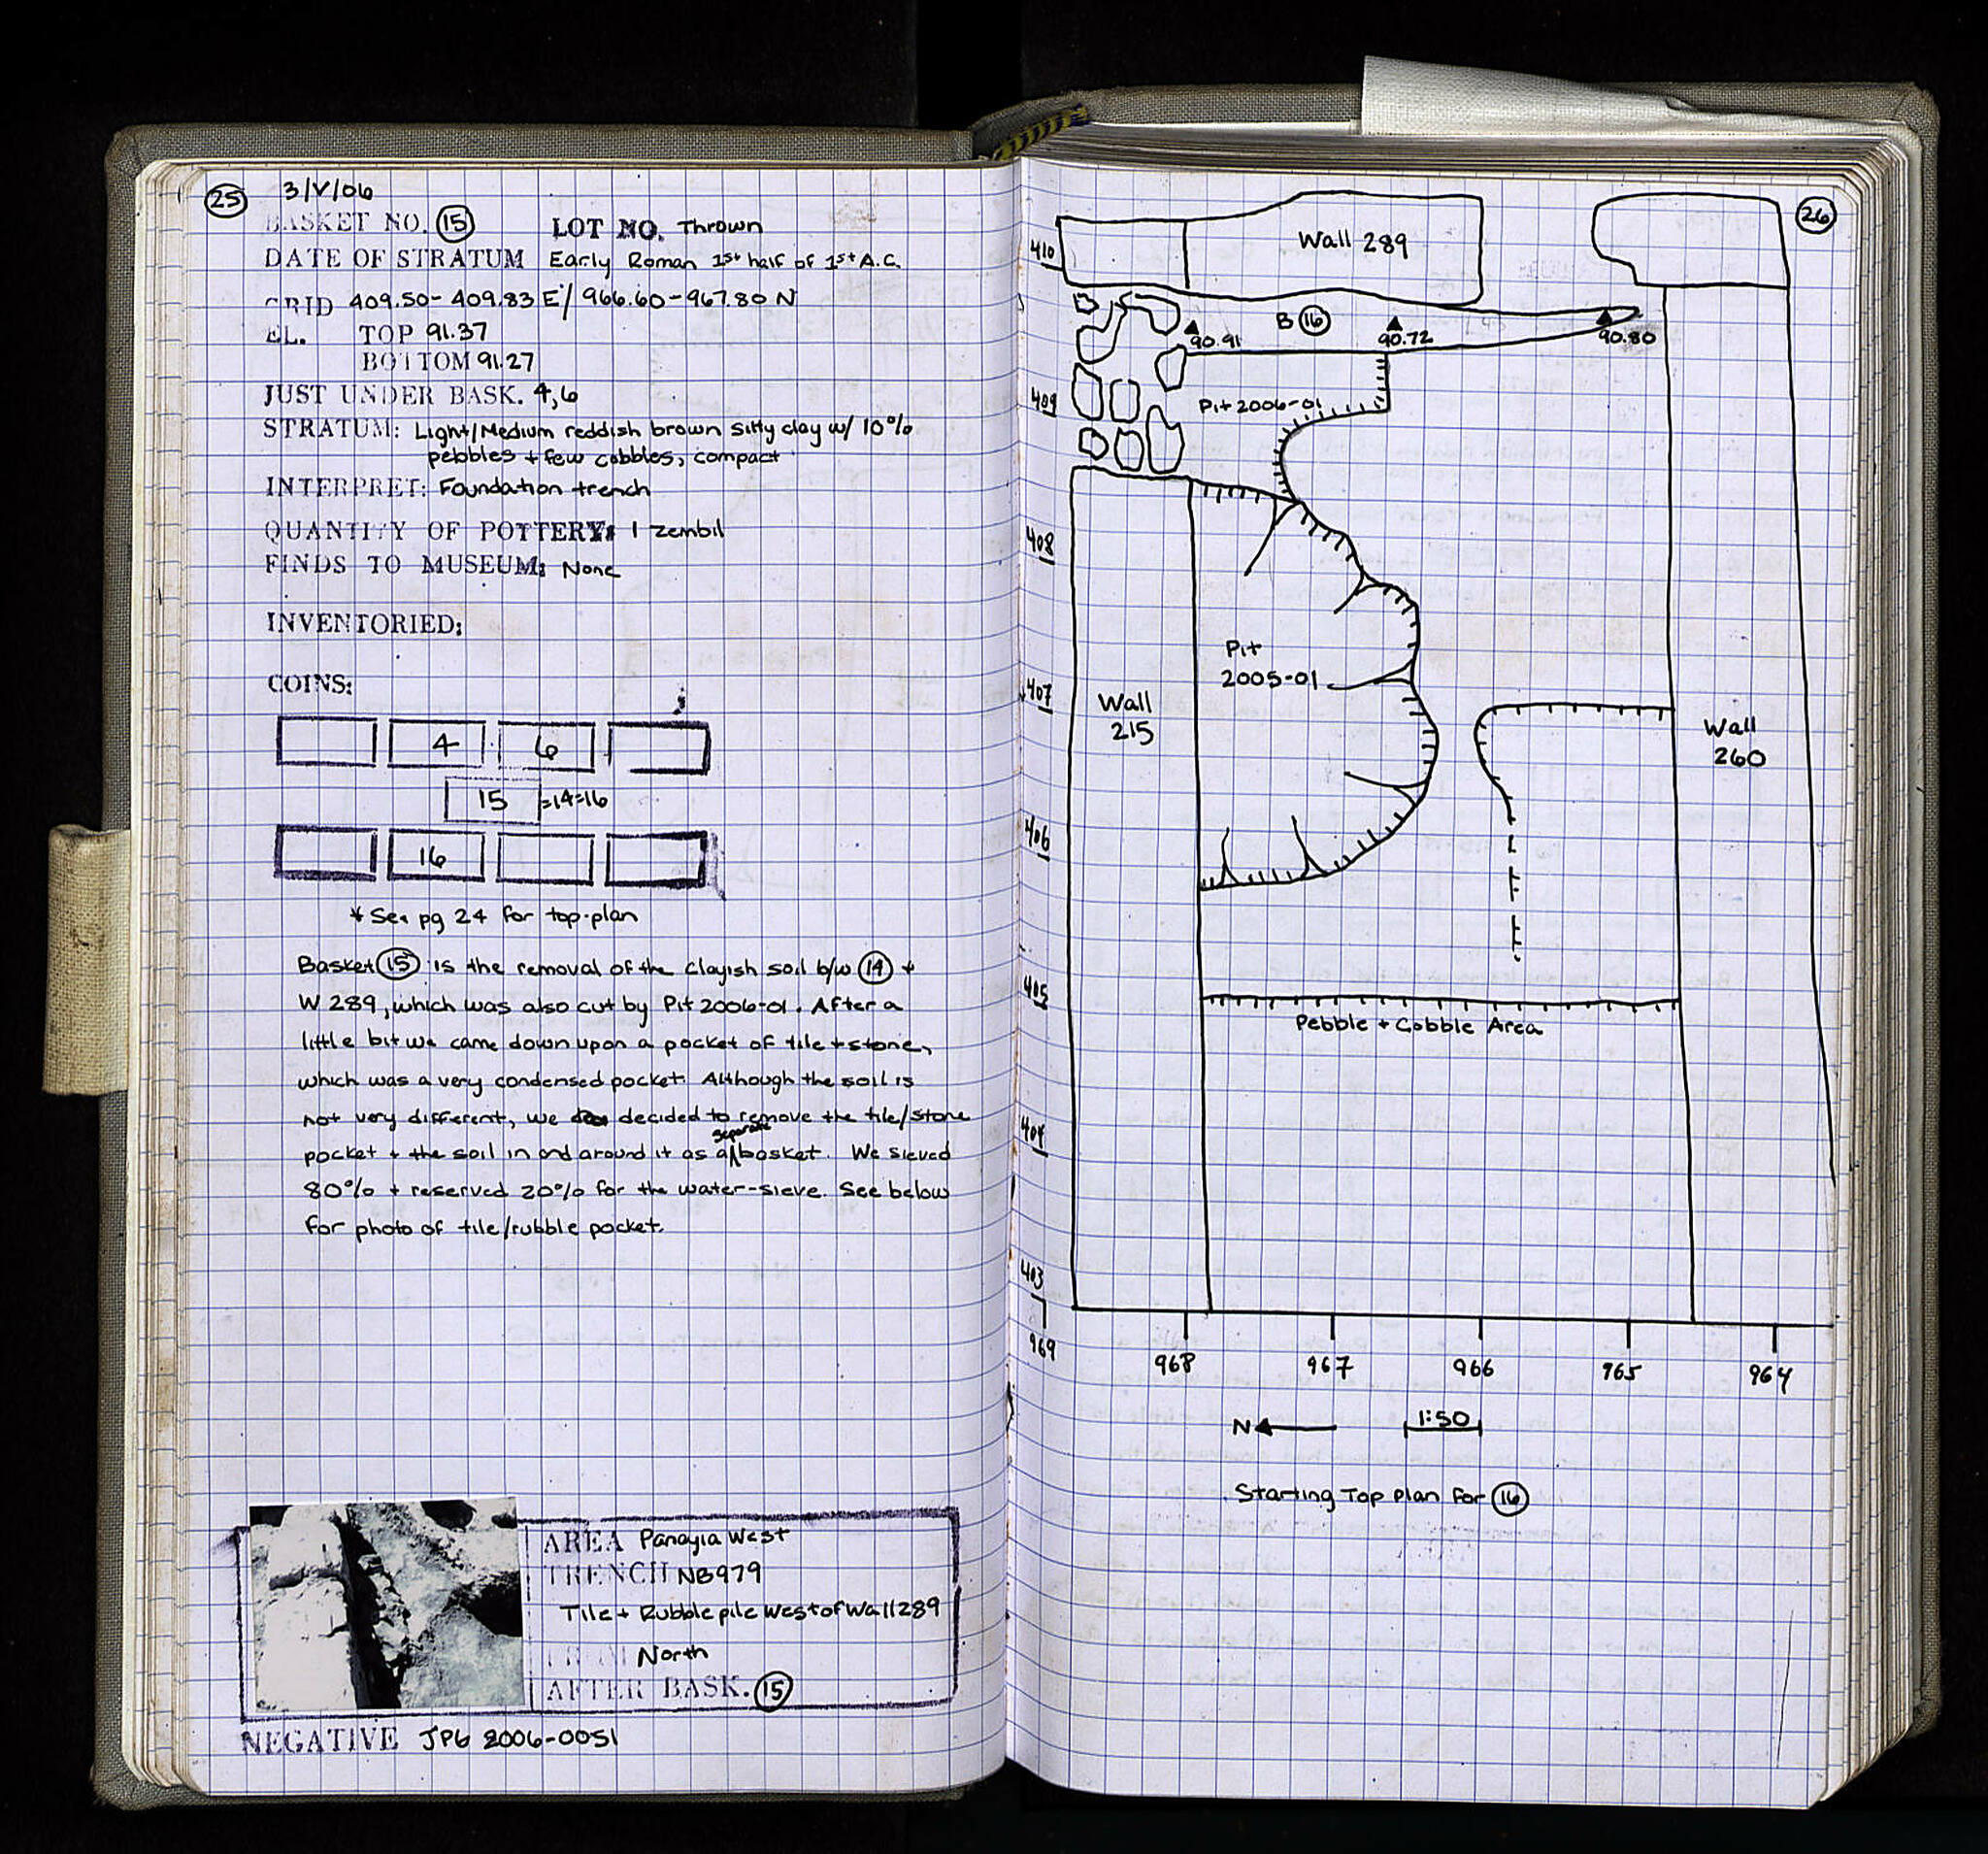 25
3/V/06
BASKET NO. 15 LOT NO. Thrown
DATE OF STRATUM Early Roman 1st half of 1st A.C.
GRID 409.50-409.83 E / 966.60-967.80 N
EL. TOP 91.37
BOTTOM 91.27
JUST UNDER BASK. 4,6
STRATUM: Light/Medium reddish brown silty clay w/ 10%
pebbles + few cobbles, compact
INTERPRET: Foundation trench
QUANTITY OF POTTERY: 1 zembil
FINDS TO MUSEUM: None
INVENTORIED:
COINS:
4 6
15 =14=16
16
* See pg 24 for top-plan
Basket 15 is the removal of the clayish soil b/w 14 +
W 289, which was also cut by Pit 2006-01. After a
little bit we came down upon a pocket of tile + stone,
which was a very condensed pocket. Although the soil is
not very different, we decided to remove the tile/stone
pocket + the soil in and around it as a separate basket. We sieved
80% + reserved 20% for the water-sieve. See below
for photo of tile/rubble pocket.
AREA Panayia West
TRENCH NB979
Tile + Rubble pile West of Wall 289
FROM North
AFTER BASK. 15
NEGATIVE JPG 2006-0051
26
410
Wall 289
B 16
90.91 90.72 90.80
409
Pit 2006-01
408
Pit
2005-01
407
Wall
215
Wall
260
406
405
Pebble + Cobble Area
404
403
969 968 967 966 965 964
N 1:50
Starting Top Plan for 16